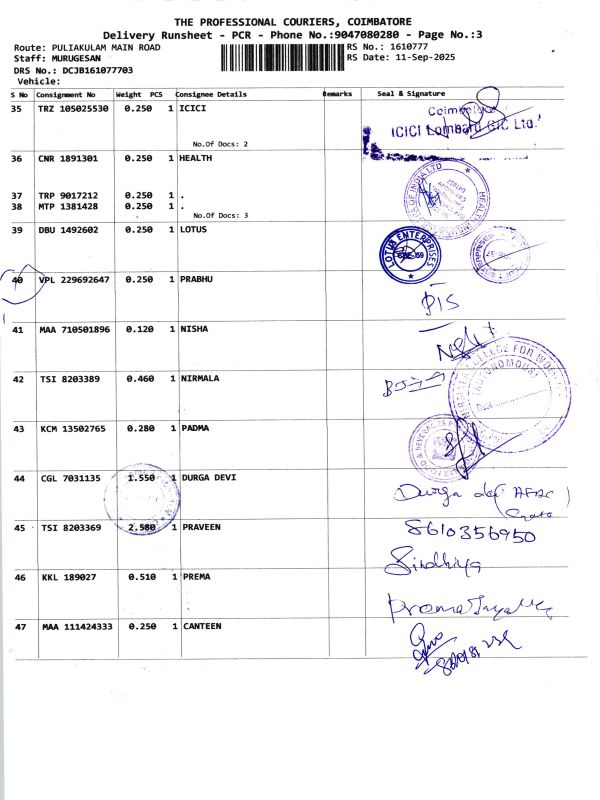 THE PROFESSIONAL COURIERS, COIMBATORE
Delivery Runsheet - PCR - Phone No.:9047080280 - Page No.:3
Route: PULIAKULAM MAIN ROAD
RS No.: 1610777
Staff: MURUGESAN
RS Date: 11-Sep-2025
DRS No.: DCJB161077703
Vehicle:
S No Consignment No Weight PCS Consignee Details Remarks Seal & Signature
35 TRZ 105025530 0.250 1 ICICI
Coimbatore
ICICI Lombard GIC Ltd.
No.Of Docs: 2
36 CNR 1891301 0.250 1 HEALTH
37 TRP 9017212 0.250 1 .
38 MTP 1381428 0.250 1 .
No.Of Docs: 3
39 DBU 1492602 0.250 1 LOTUS
LOTUS ENTERPRISES
40 VPL 229692647 0.250 1 PRABHU
41 MAA 710501896 0.120 1 NISHA
42 TSI 8203389 0.460 1 NIRMALA
43 KCM 13502765 0.280 1 PADMA
44 CGL 7031135 1.550 1 DURGA DEVI
Durga devi
45 TSI 8203369 2.580 1 PRAVEEN
8610356950
Sindhiya
46 KKL 189027 0.510 1 PREMA
Prema
47 MAA 111424333 0.250 1 CANTEEN